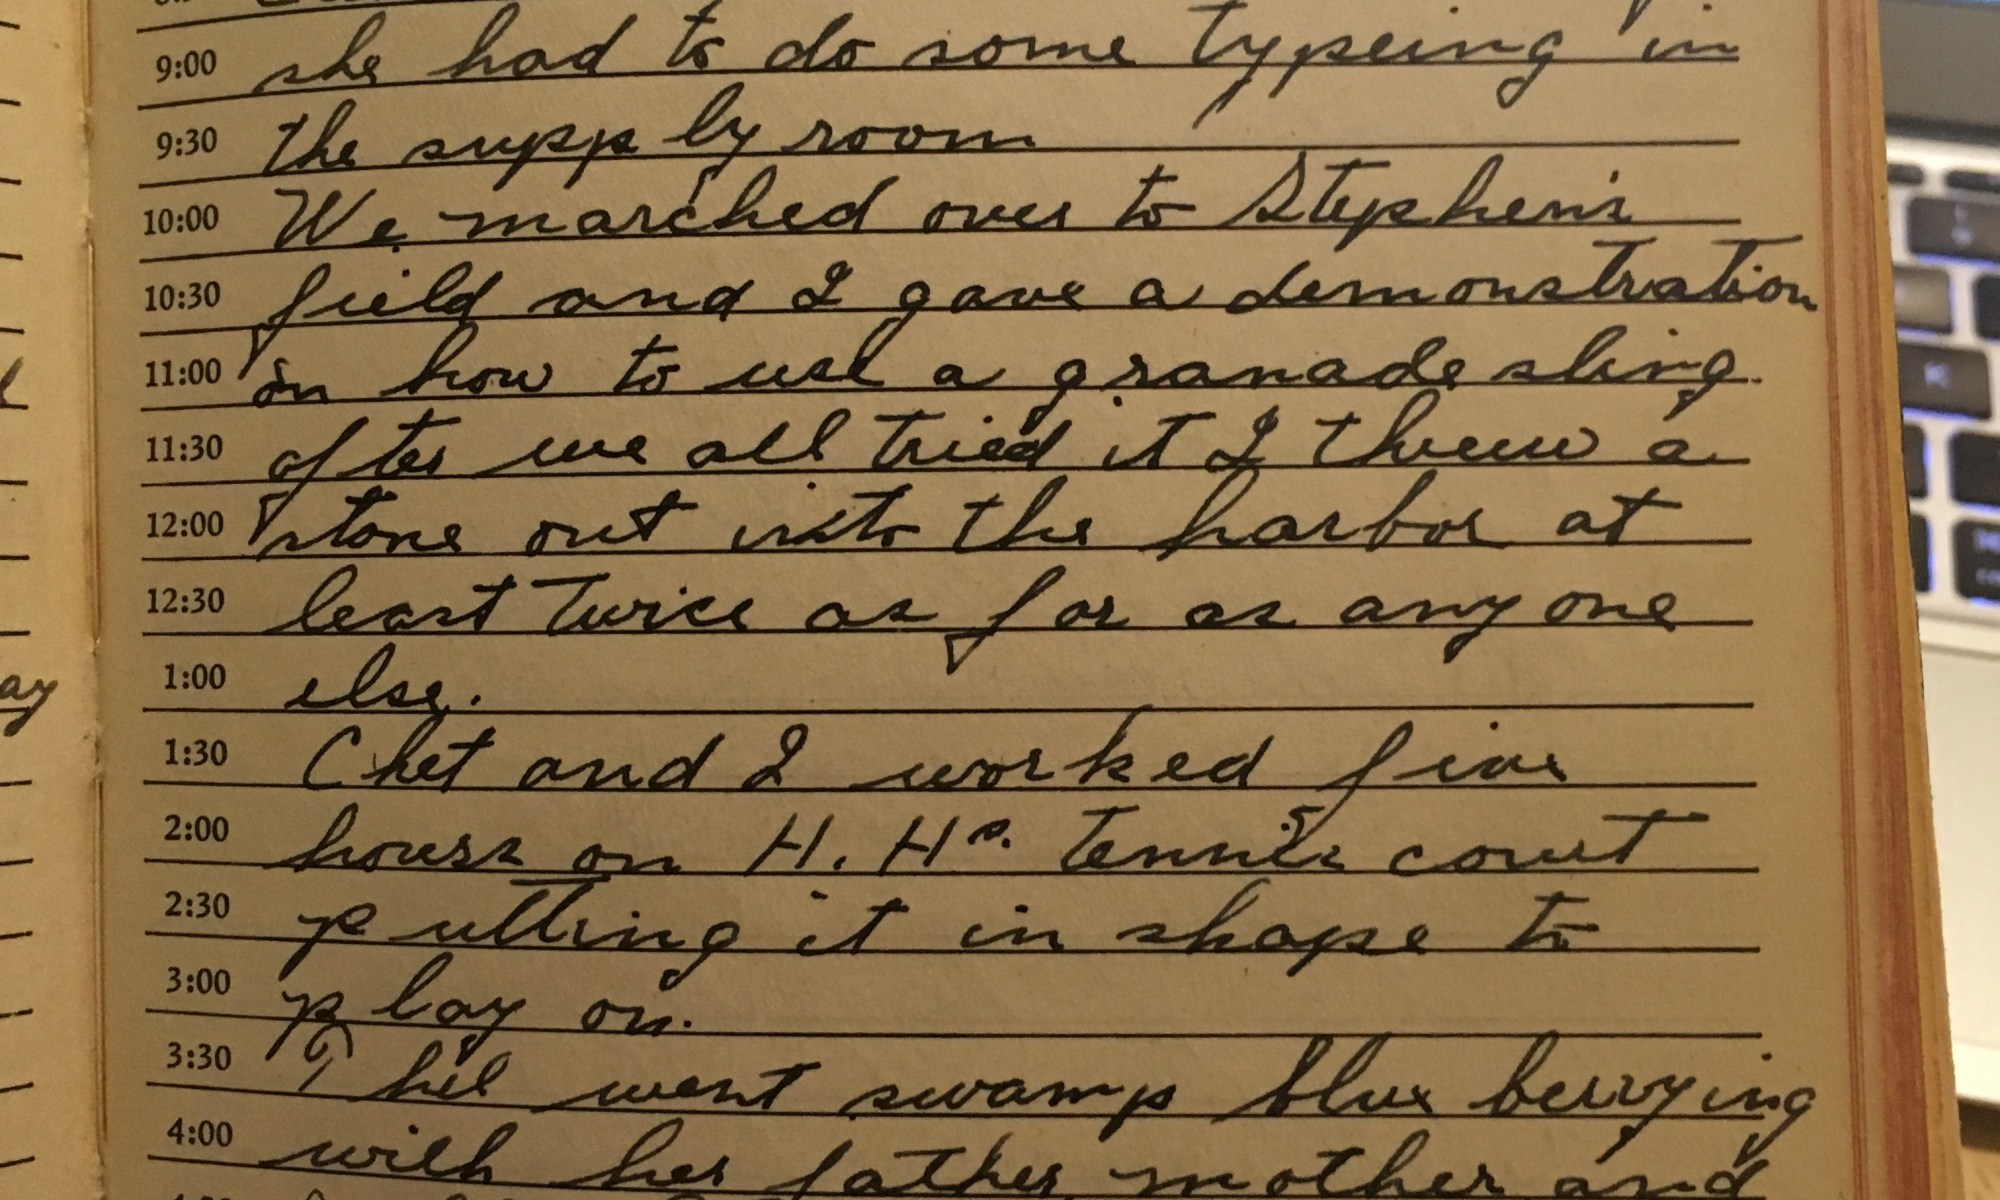 9:00 she had to do some typeing in
9:30 the supply room
10:00 We marched over to Stephen's
10:30 field and I gave a demonstration
11:00 on how to use a granade sling.
11:30 after we all tried it I threw a
12:00 stone out into the harbor at
12:30 least twice as far as any one
1:00 else.
1:30 Chet and I worked five
2:00 hours on H. Hs. tennis court
2:30 putting it in shape to
3:00 play on.
3:30 Phil went swamp blue berrying
4:00 with her father mother and
ay
K